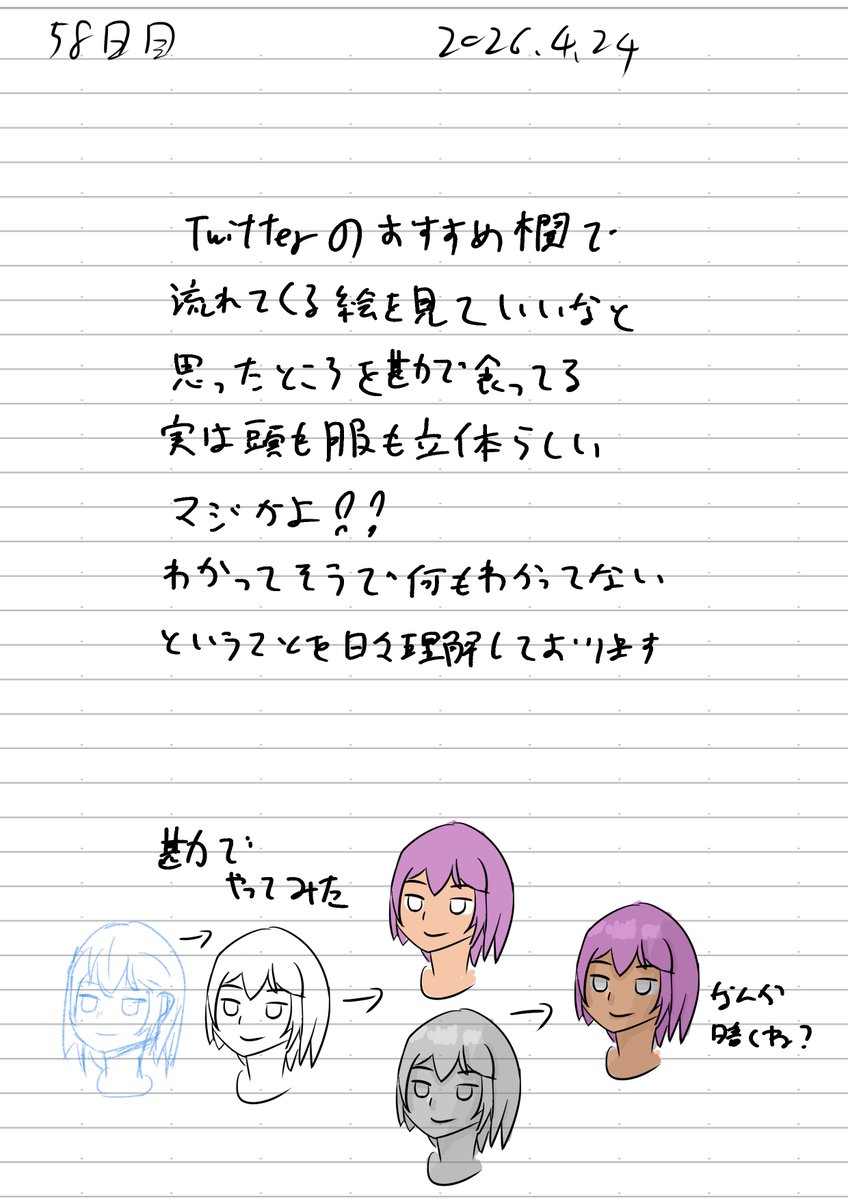 58日目
2026.4.24
Twitterのおすすめ欄で
流れてくる絵を見ていいなと
思ったところを勘で食ってる
実は頭も服も立体らしい
マジかよ??
わかってそうで何もわかってない
ということを日々理解しております
勘で
やってみた
なんか
暗くね?